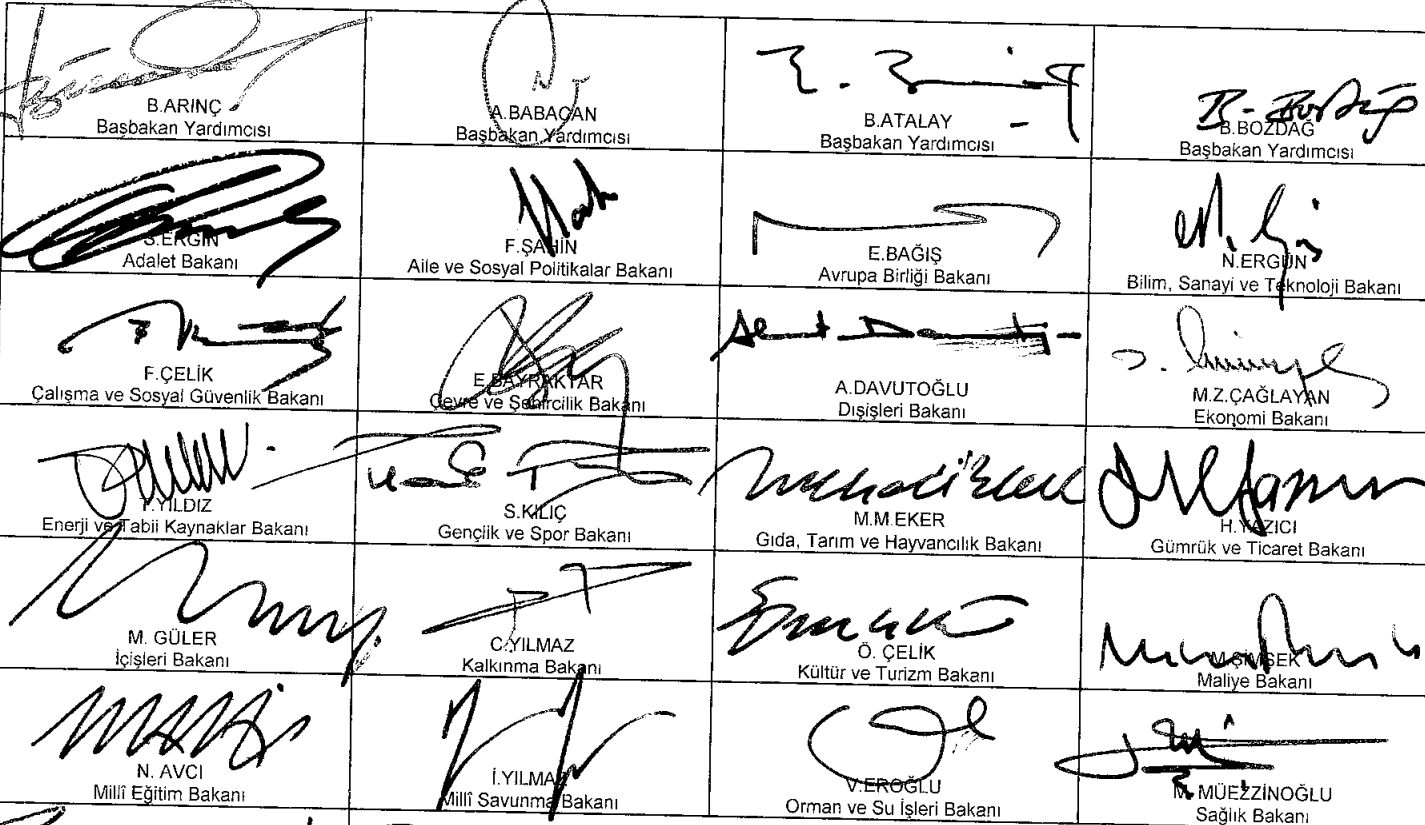 B.ARINÇ
Başbakan Yardımcısı
A.BABACAN
Başbakan Yardımcısı
B.ATALAY
Başbakan Yardımcısı
B.BOZDAĞ
Başbakan Yardımcısı
S.ERGİN
Adalet Bakanı
F.ŞAHİN
Aile ve Sosyal Politikalar Bakanı
E.BAĞIŞ
Avrupa Birliği Bakanı
N.ERGÜN
Bilim, Sanayi ve Teknoloji Bakanı
F.ÇELİK
Çalışma ve Sosyal Güvenlik Bakanı
E.BAYRAKTAR
Çevre ve Şehircilik Bakanı
A.DAVUTOĞLU
Dışişleri Bakanı
M.Z.ÇAĞLAYAN
Ekonomi Bakanı
T.YILDIZ
Enerji ve Tabii Kaynaklar Bakanı
S.KILIÇ
Gençlik ve Spor Bakanı
M.M.EKER
Gıda, Tarım ve Hayvancılık Bakanı
H.YAZICI
Gümrük ve Ticaret Bakanı
M. GÜLER
İçişleri Bakanı
C.YILMAZ
Kalkınma Bakanı
Ö. ÇELİK
Kültür ve Turizm Bakanı
M.ŞİMŞEK
Maliye Bakanı
N. AVCI
Millî Eğitim Bakanı
İ.YILMAZ
Millî Savunma Bakanı
V.EROĞLU
Orman ve Su İşleri Bakanı
M. MÜEZZİNOĞLU
Sağlık Bakanı